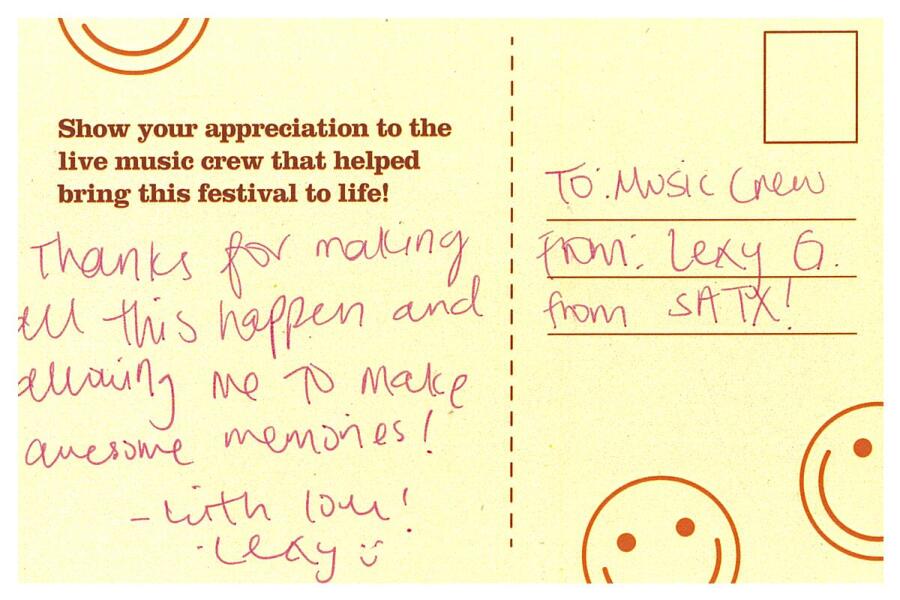 Show your appreciation to the
live music crew that helped
bring this festival to life!
Thanks for making
all this happen and
allowing me to make
awesome memories!
- with love!
-Lexy :)
To: Music Crew
From: Lexy G.
from SATX!